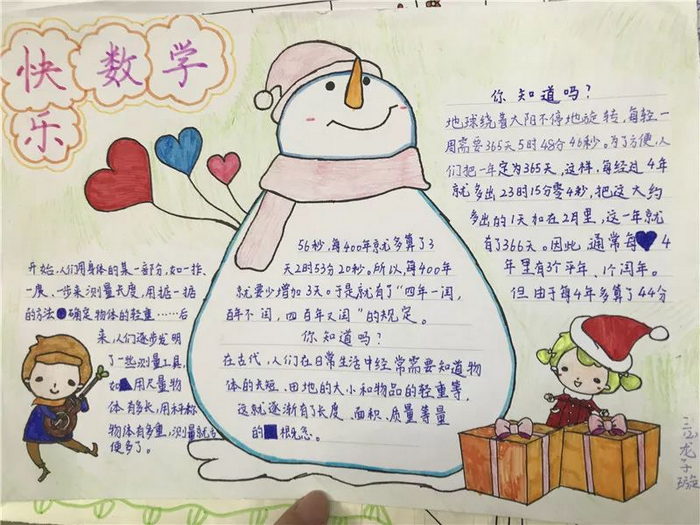 快数学
乐
你知道吗?
地球绕着太阳不停地旋转,每轻一
周需要365天5时48分46秒。为了方便,人
们把一年定为365天,这样,每经过4年
就多出23时15分零4秒,把这大约
多出的1天加在2月里,这一年就
有了366天。因此通常每4
年里有3个平年、1个闰年。
但由于每4年多算了44分
56秒,每400年就多算了3
天2时53分20秒。所以,每400年
就要少增加3天。于是就有了“四年一闰,
百年不闰,四百年又闰”的规定。
你知道吗?
在古代,人们在日常生活中经常需要知道物
体的长短、田地的大小和物品的轻重等,
这就逐渐有了长度、面积、质量等量
的概念。
开始,人们用身体的某一部分,如一拃、
一庹、一步来测量长度,用掂一掂
的方法确定物体的轻重……后
来,人们逐步发明
了一些测量工具,
如用尺量物
体有多长,用秤称
物体有多重,测量就方
便多了。
龙子璇